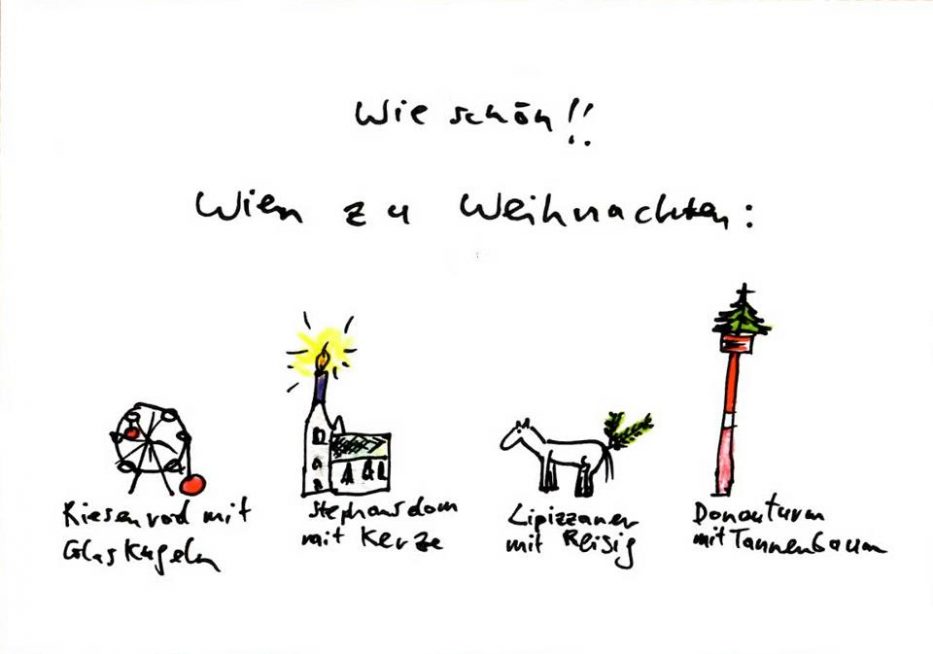 Wie schön!!
Wien zu Weihnachten:
Riesenrad mit
Glaskugeln
Stephansdom
mit Kerze
Lipizzaner
mit Reisig
Donauturm
mit Tannenbaum